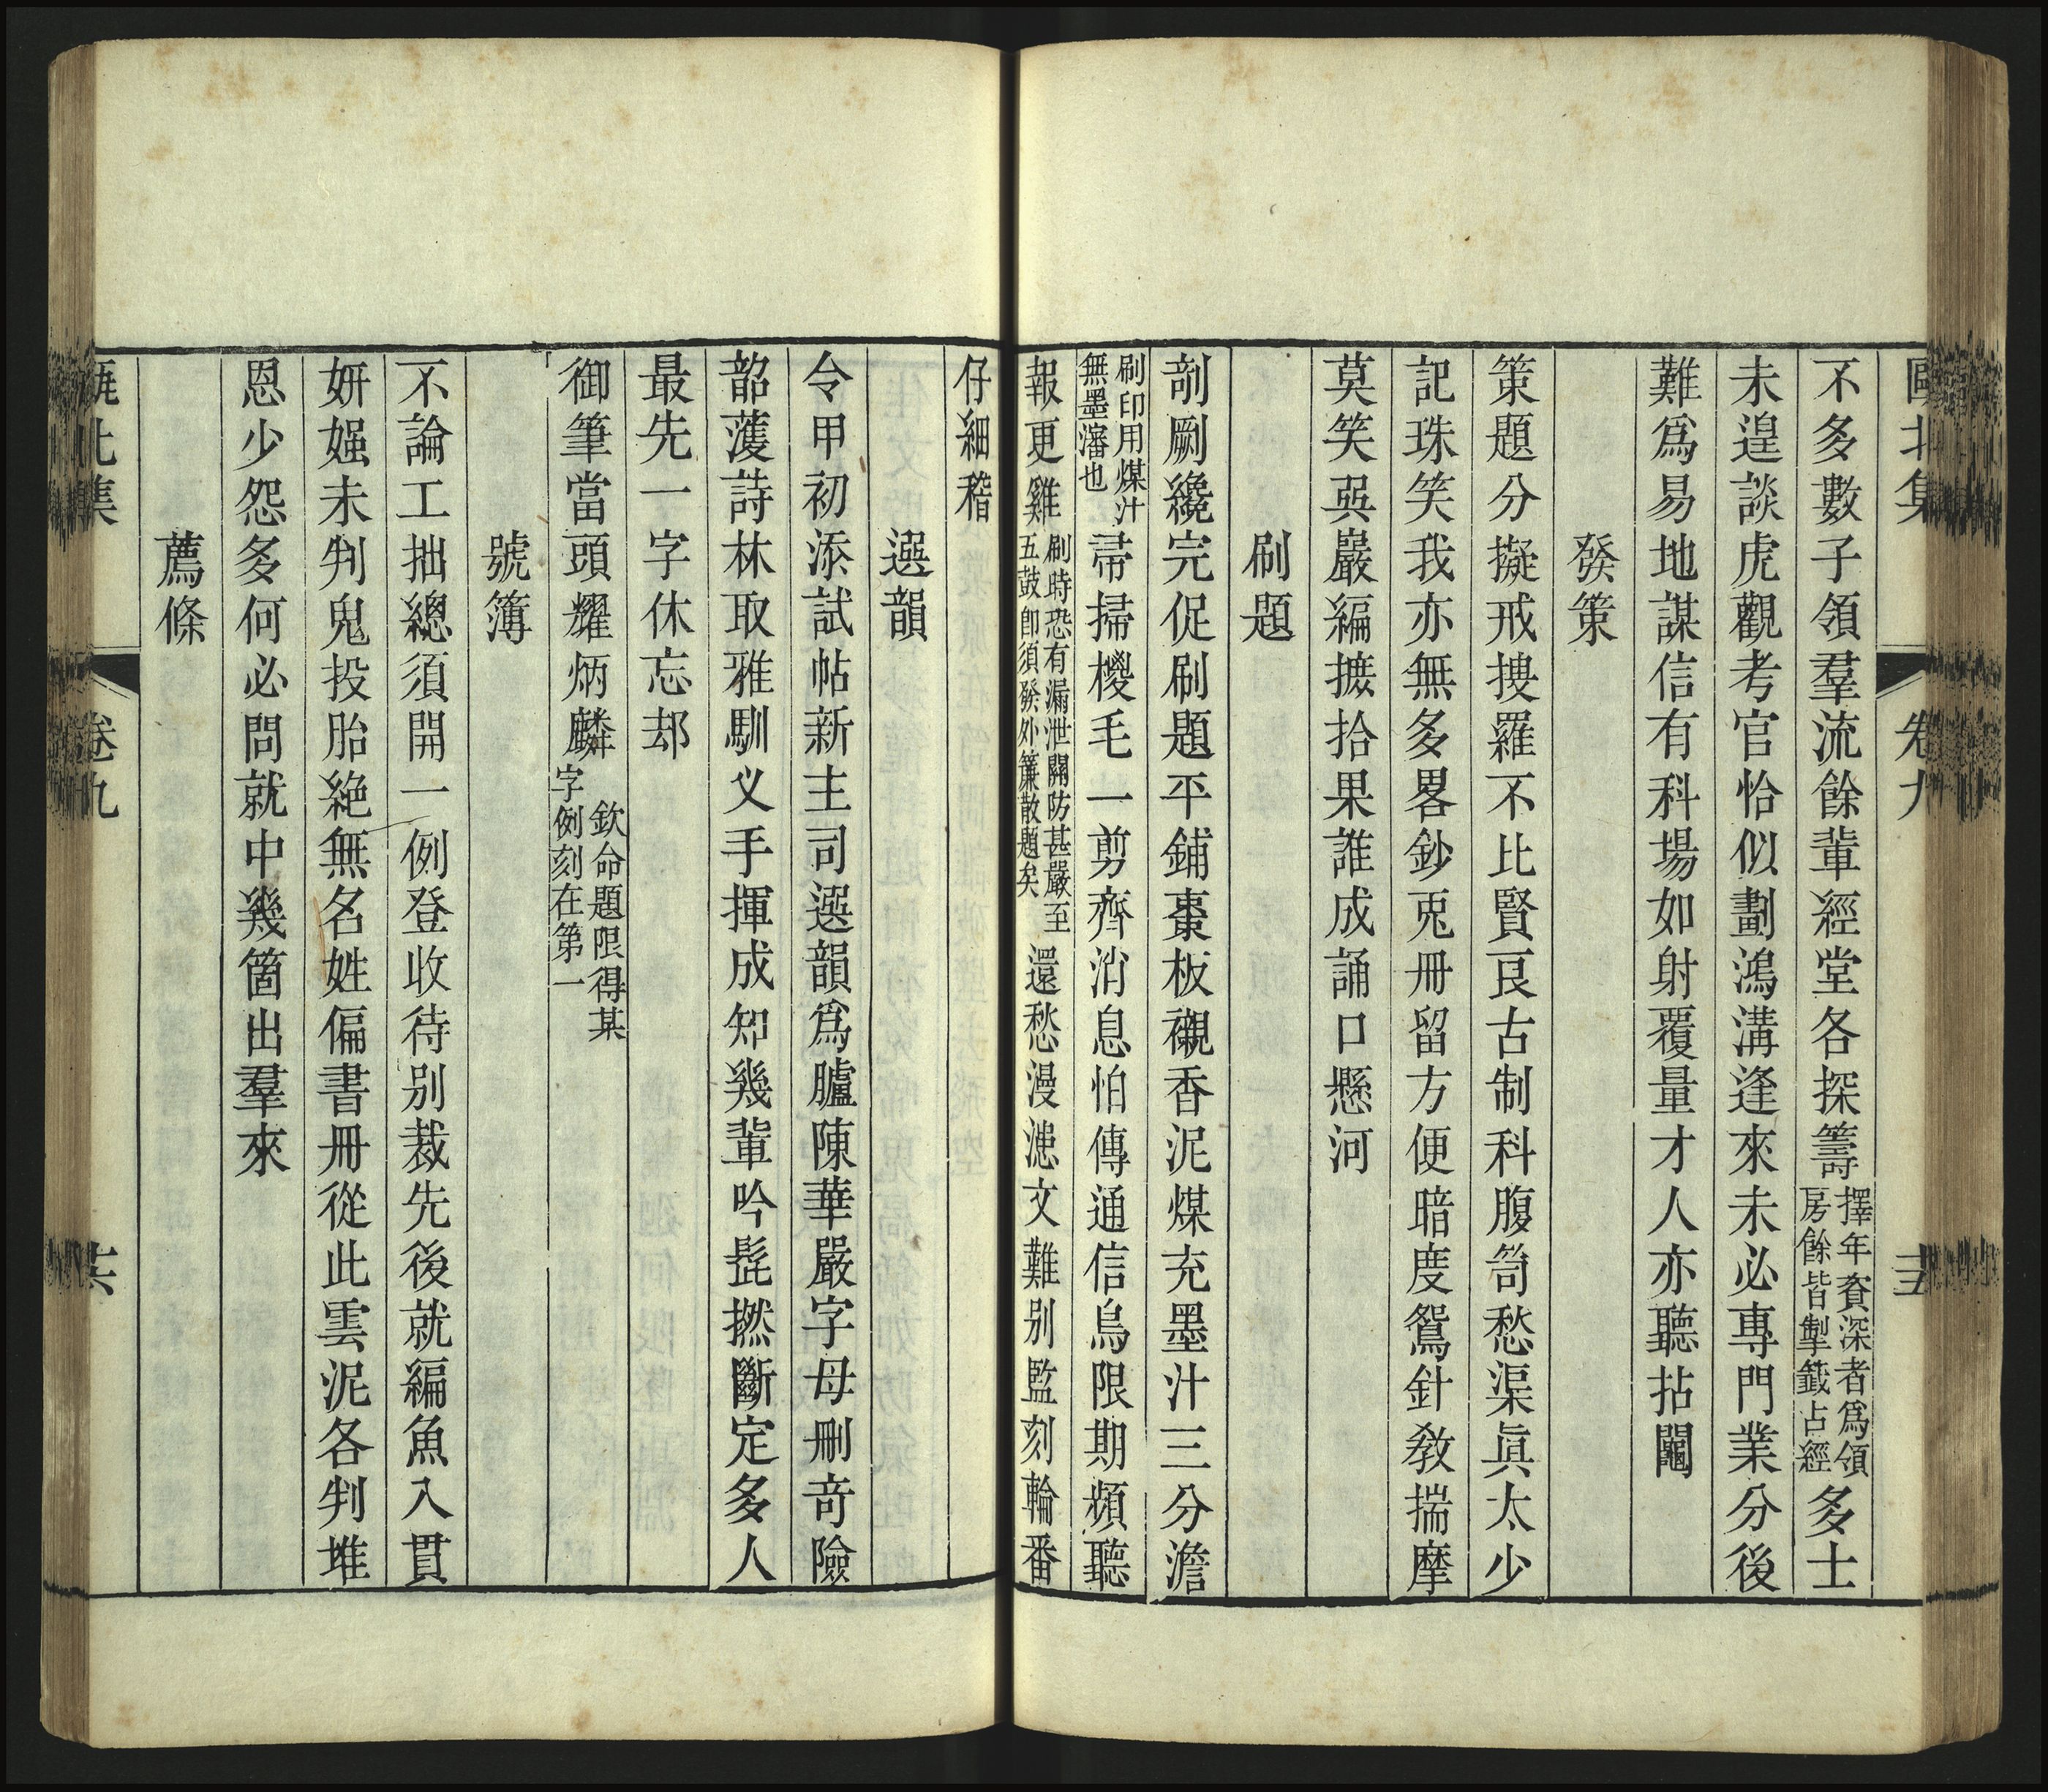 甌北集 卷九 十五
不多數子領羣流餘輩經堂各探籌擇年資深者爲領房餘皆掣籤占經多士
未遑談虎觀考官恰似劃鴻溝逢來未必專門業分後
難爲易地謀信有科塲如射覆量才人亦聽拈鬮
發策
策題分擬戒搜羅不比賢良古制科腹笥愁渠眞太少
記珠笑我亦無多畧鈔兎冊留方便暗度鴛針敎揣摩
莫笑巽巖編摭拾果誰成誦口懸河
刷題
剞劂纔完促刷題平鋪棗板襯香泥煤充墨汁三分澹
刷印用煤汁無墨瀋也帚掃椶毛一剪齊消息怕傳通信鳥限期頻聽
報更雞刷時恐有漏泄關防甚嚴至五鼓卽須發外簾散題矣還愁漫漶文難別監刻輪番
仔細稽
選韻
令甲初添試帖新主司選韻爲臚陳華嚴字母刪奇險
韶濩詩林取雅馴义手揮成知幾輩吟髭撚斷定多人
最先一字休忘却
御筆當頭耀炳麟欽命題限得某字例刻在第一
號簿
不論工拙總須開一例登收待別裁先後就編魚入貫
妍媸未判鬼投胎絶無名姓偏書冊從此雲泥各判堆
恩少怨多何必問就中幾箇出羣來
薦條
甌北集 卷九 十六